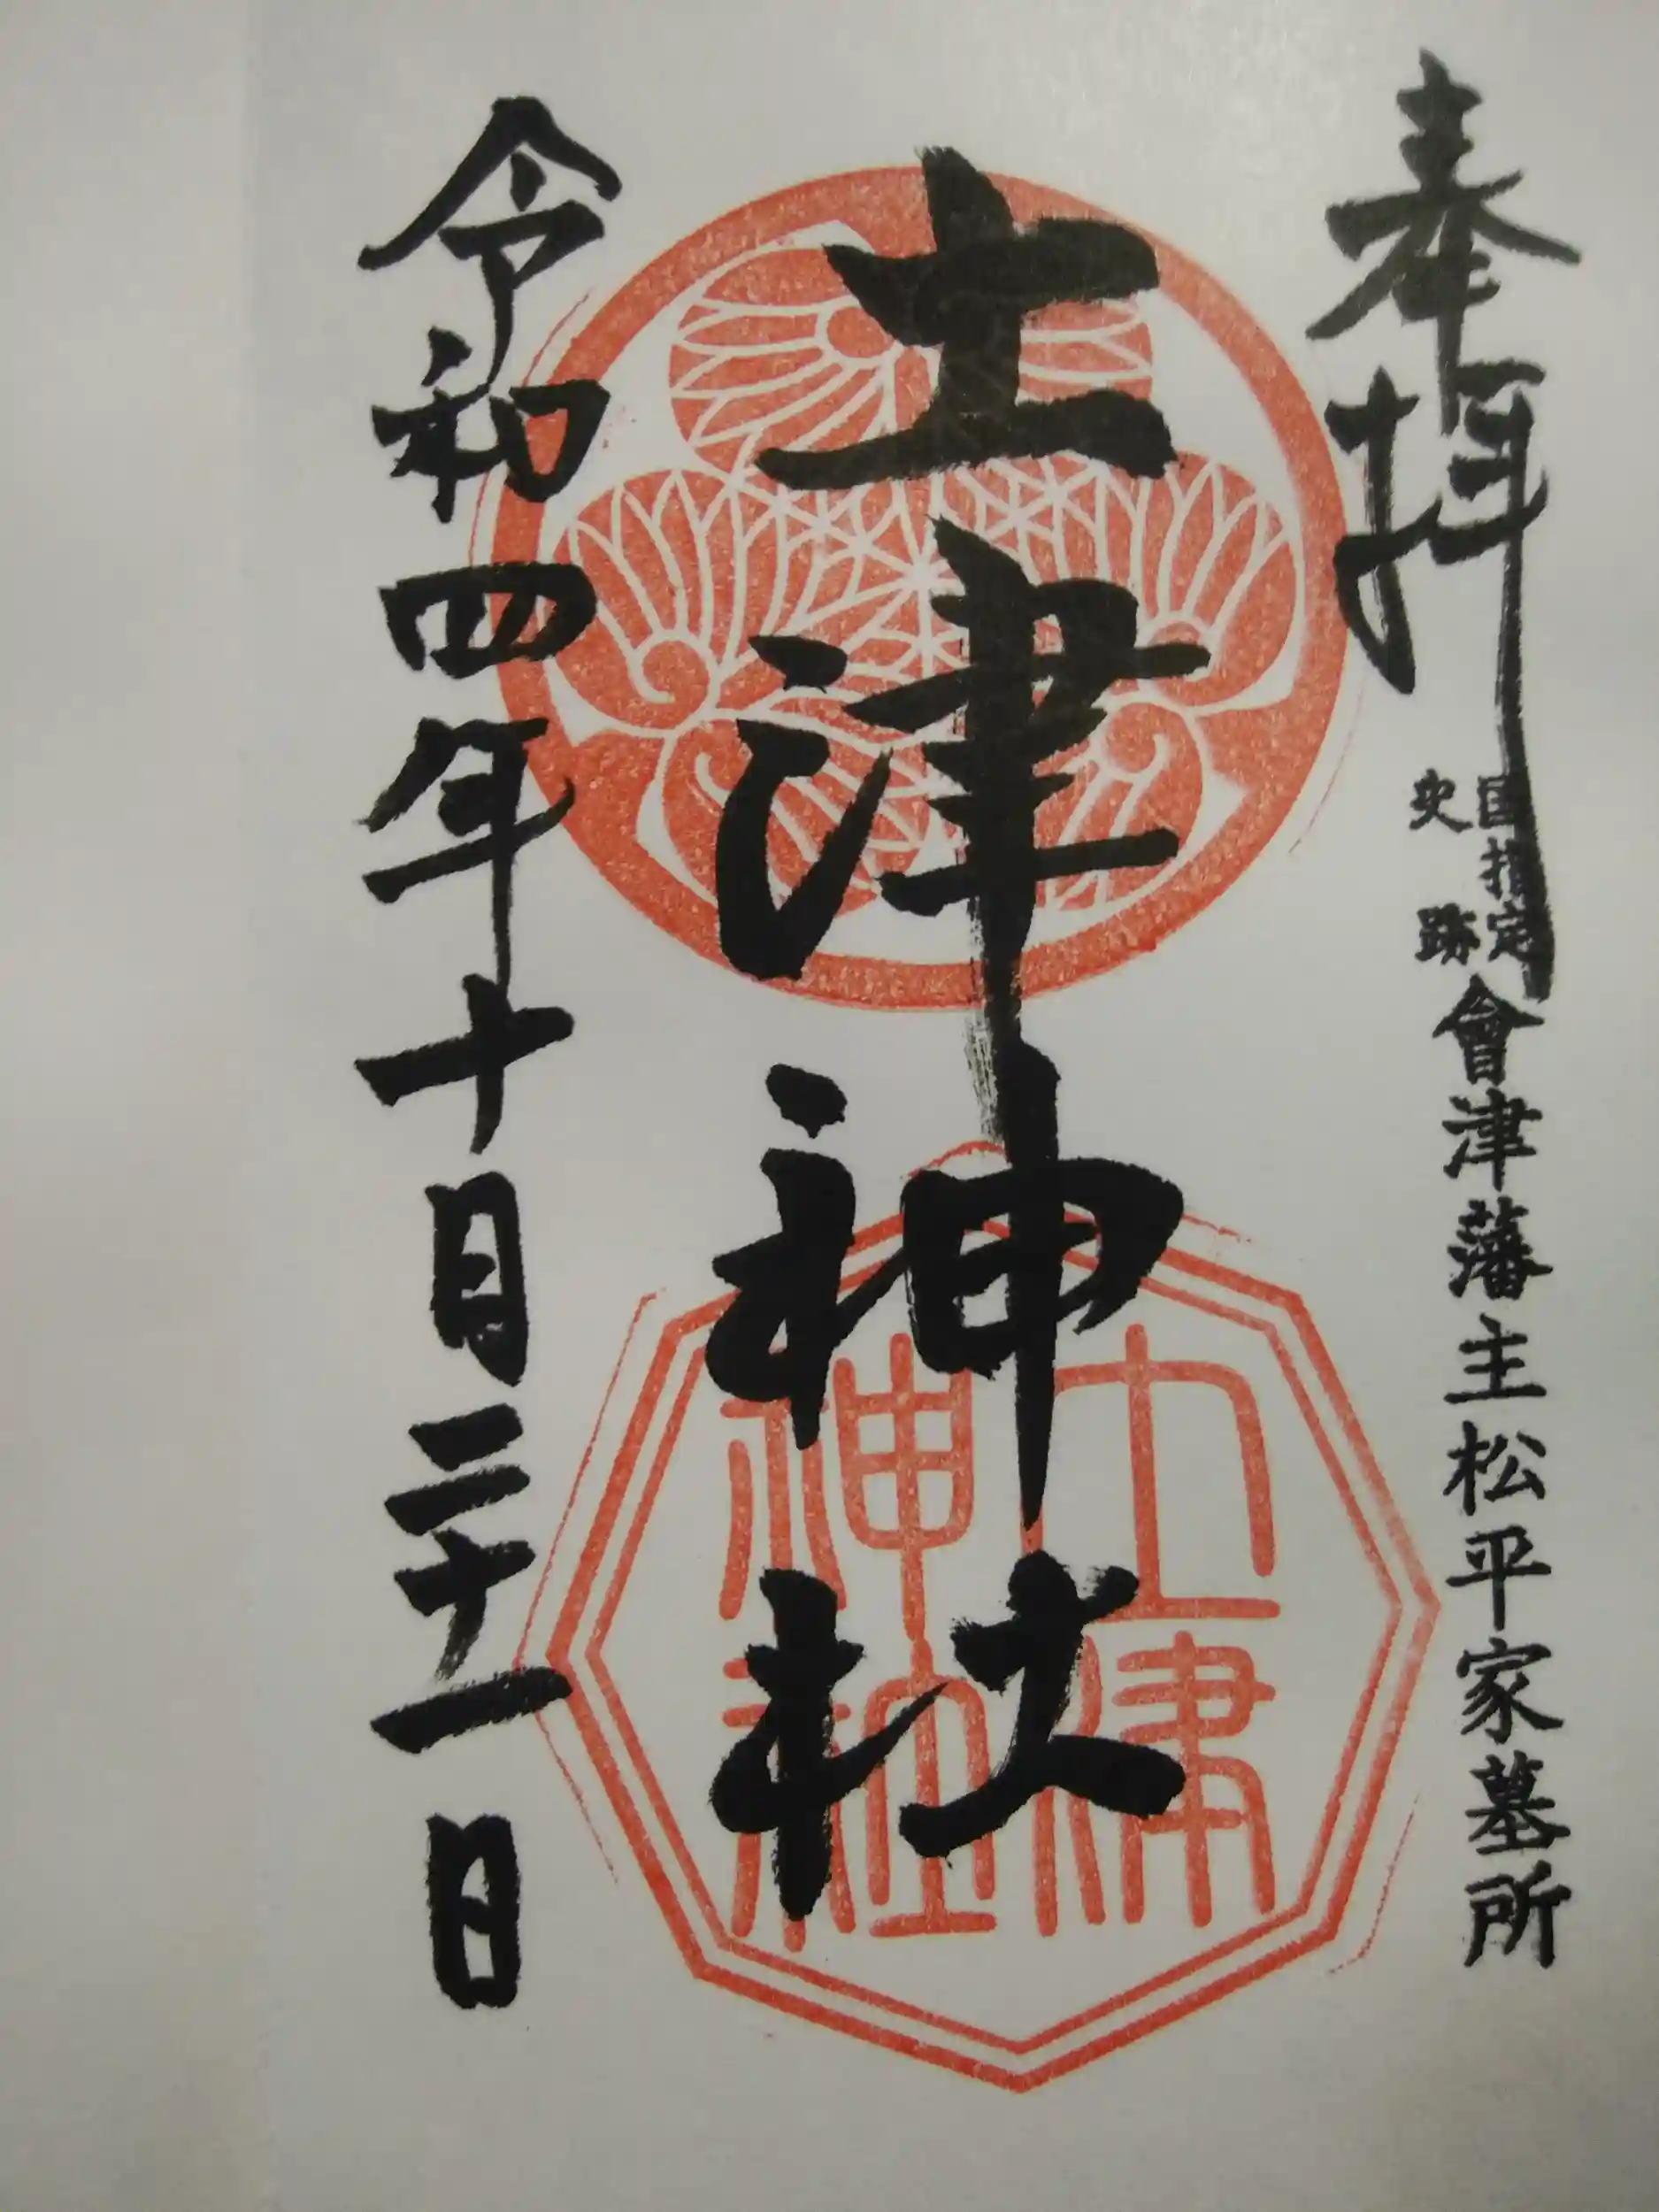 奉拝
国指定
史跡
會津藩主松平家墓所
土津神社
土津
神社
令和四年十月二十一日